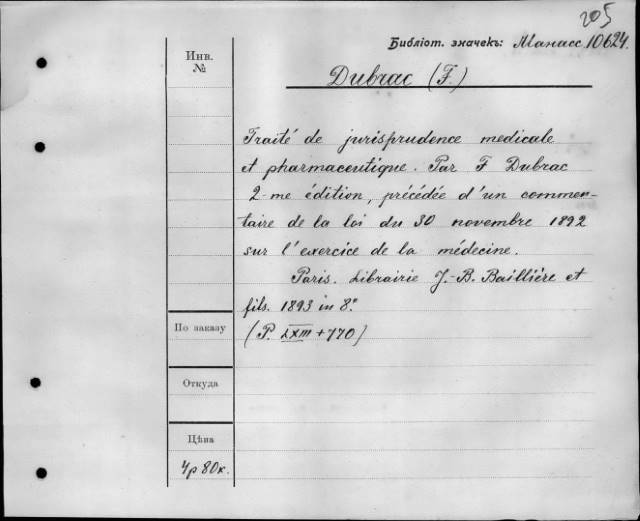 205
Библіот. значекъ: Манасс 10624.
Инв.
№
Dubrac (F.)
Traité de jurisprudence medicale
et pharmaceutique. Par F Dubrac
2-me édition, précédée d'un commen-
taire de la loi du 30 novembre 1892
sur l'exercice de la médecine.
Paris. Librairie J.-B. Baillière et
fils. 1893 in 8°.
(P. LXIII + 770)
По заказу
Откуда
Цѣна
4р 80к.